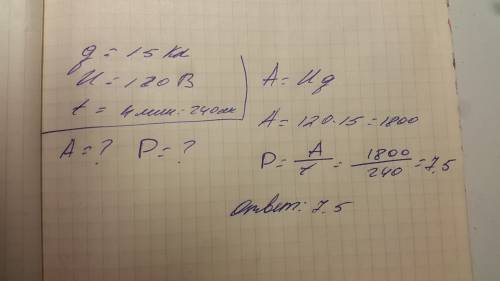 q = 15 Кл
U = 120 В
t = 4 мин = 240 сек
A = ? P = ?
A = Uq
A = 120 · 15 = 1800
P = A/t = 1800/240 = 7,5
Ответ: 7,5